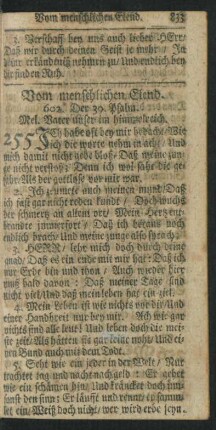 Vom menschlichen Elend. 833
3. Verschaff bey uns auch lieber HErr/
Daß wir durch deinen Geist je mehr/ In
dein erkändnüß nehmen zu/ Und endtlich bey
dir finden Ruh.
Vom menschlichen Elend.
602. Der 39. Psalm.
Mel. Vater unser im himmelreich.
255 ICh habe offt bey mir bedacht/ Wie
ich die worte nehm in acht/ Und
mich damit nicht gebe bloß/ Daß meine zun-
ge nicht verstoß: Denn ich wol sahe die ge-
fahr/ Als der gottloß vor mir war.
2. Ich zümete auch meinen mund/ Daß
ich fast gar nicht reden kundt/ Doch wuchs
der schmertz an allem ort/ Mein Hertz ent-
brandte jmmerfort/ Daß ich heraus noch
endlich brach/ Und meine zunge also sprach:
3. HERR/ lehr mich doch durch deine
gnad/ Daß es ein ende mit mir hat: Daß ich
nur Erde bin und thon/ Auch wieder hier
muß bald davon: Daß meiner Tage sind
nicht viel/ Und daß mein leben hat ein ziel.
4. Mein Leben ist wie nichts vor dir/ Und
einer Handbreit nur bey mir. Ach wie gar
nichts sind alle leut! Und leben doch die mei-
ste zeit/ Als hätten sie gar keine noht/ Und ei-
nen Bund auch mit dem Todt.
5. Geht wie ein jeder in der Welt/ Nur
trachtet tag und nacht nach geld: Er gehet
wie ein schämen hin/ Und kräncket doch umb-
sonst den sinn: Er laufft und rennt/ er samm-
let ein/ Weiß doch nicht/ wer wird erbe seyn.